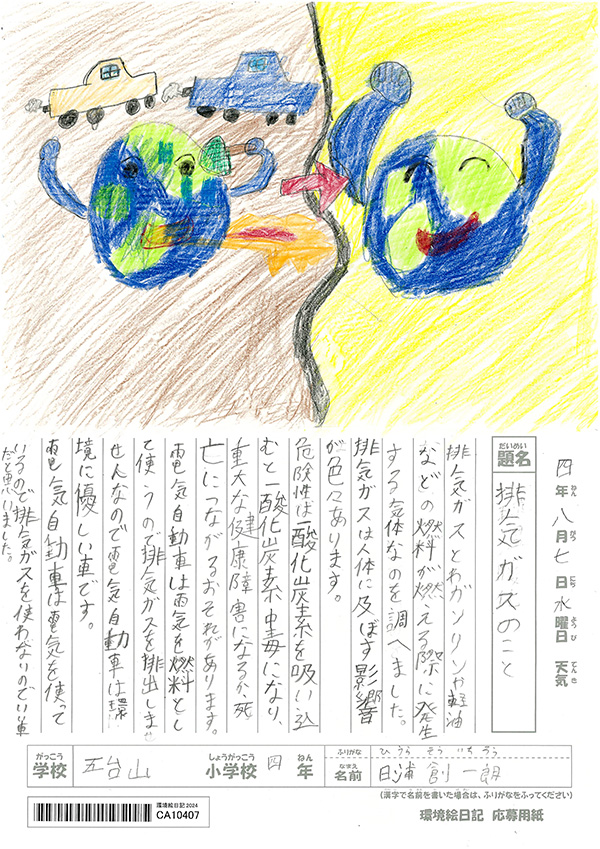 四年八月七日水曜日 天気
ねん がつ にち ようび てんき
だいめい
題名
排気ガスのこと
排気ガスとわガソリンや軽油
などの燃料が燃える際に発生
する気体なのを調べました。
排気ガスは人体に及ぼす影響
が色々あります。
危険性は一酸化炭素を吸い込
むと一酸化炭素中毒になり、
重大な健康障害になるか、死
亡につながるおそれがあります。
電気自動車は電気を燃料とし
て使うので排気ガスを排出しま
せんなので電気自動車は環
境に優しい車です。
電気自動車は電気を使って
いるので排気ガスを使わないのでいい車
だと思いました。
がっこう
学校
五台山
しょうがっこう
小学校
四
ねん
年
ふりがな
ひうら そういちろう
なまえ
名前
日浦 創一朗
(漢字で名前を書いた場合は、ふりがなをふってください)
環境絵日記2024
CA10407
環境絵日記 応募用紙